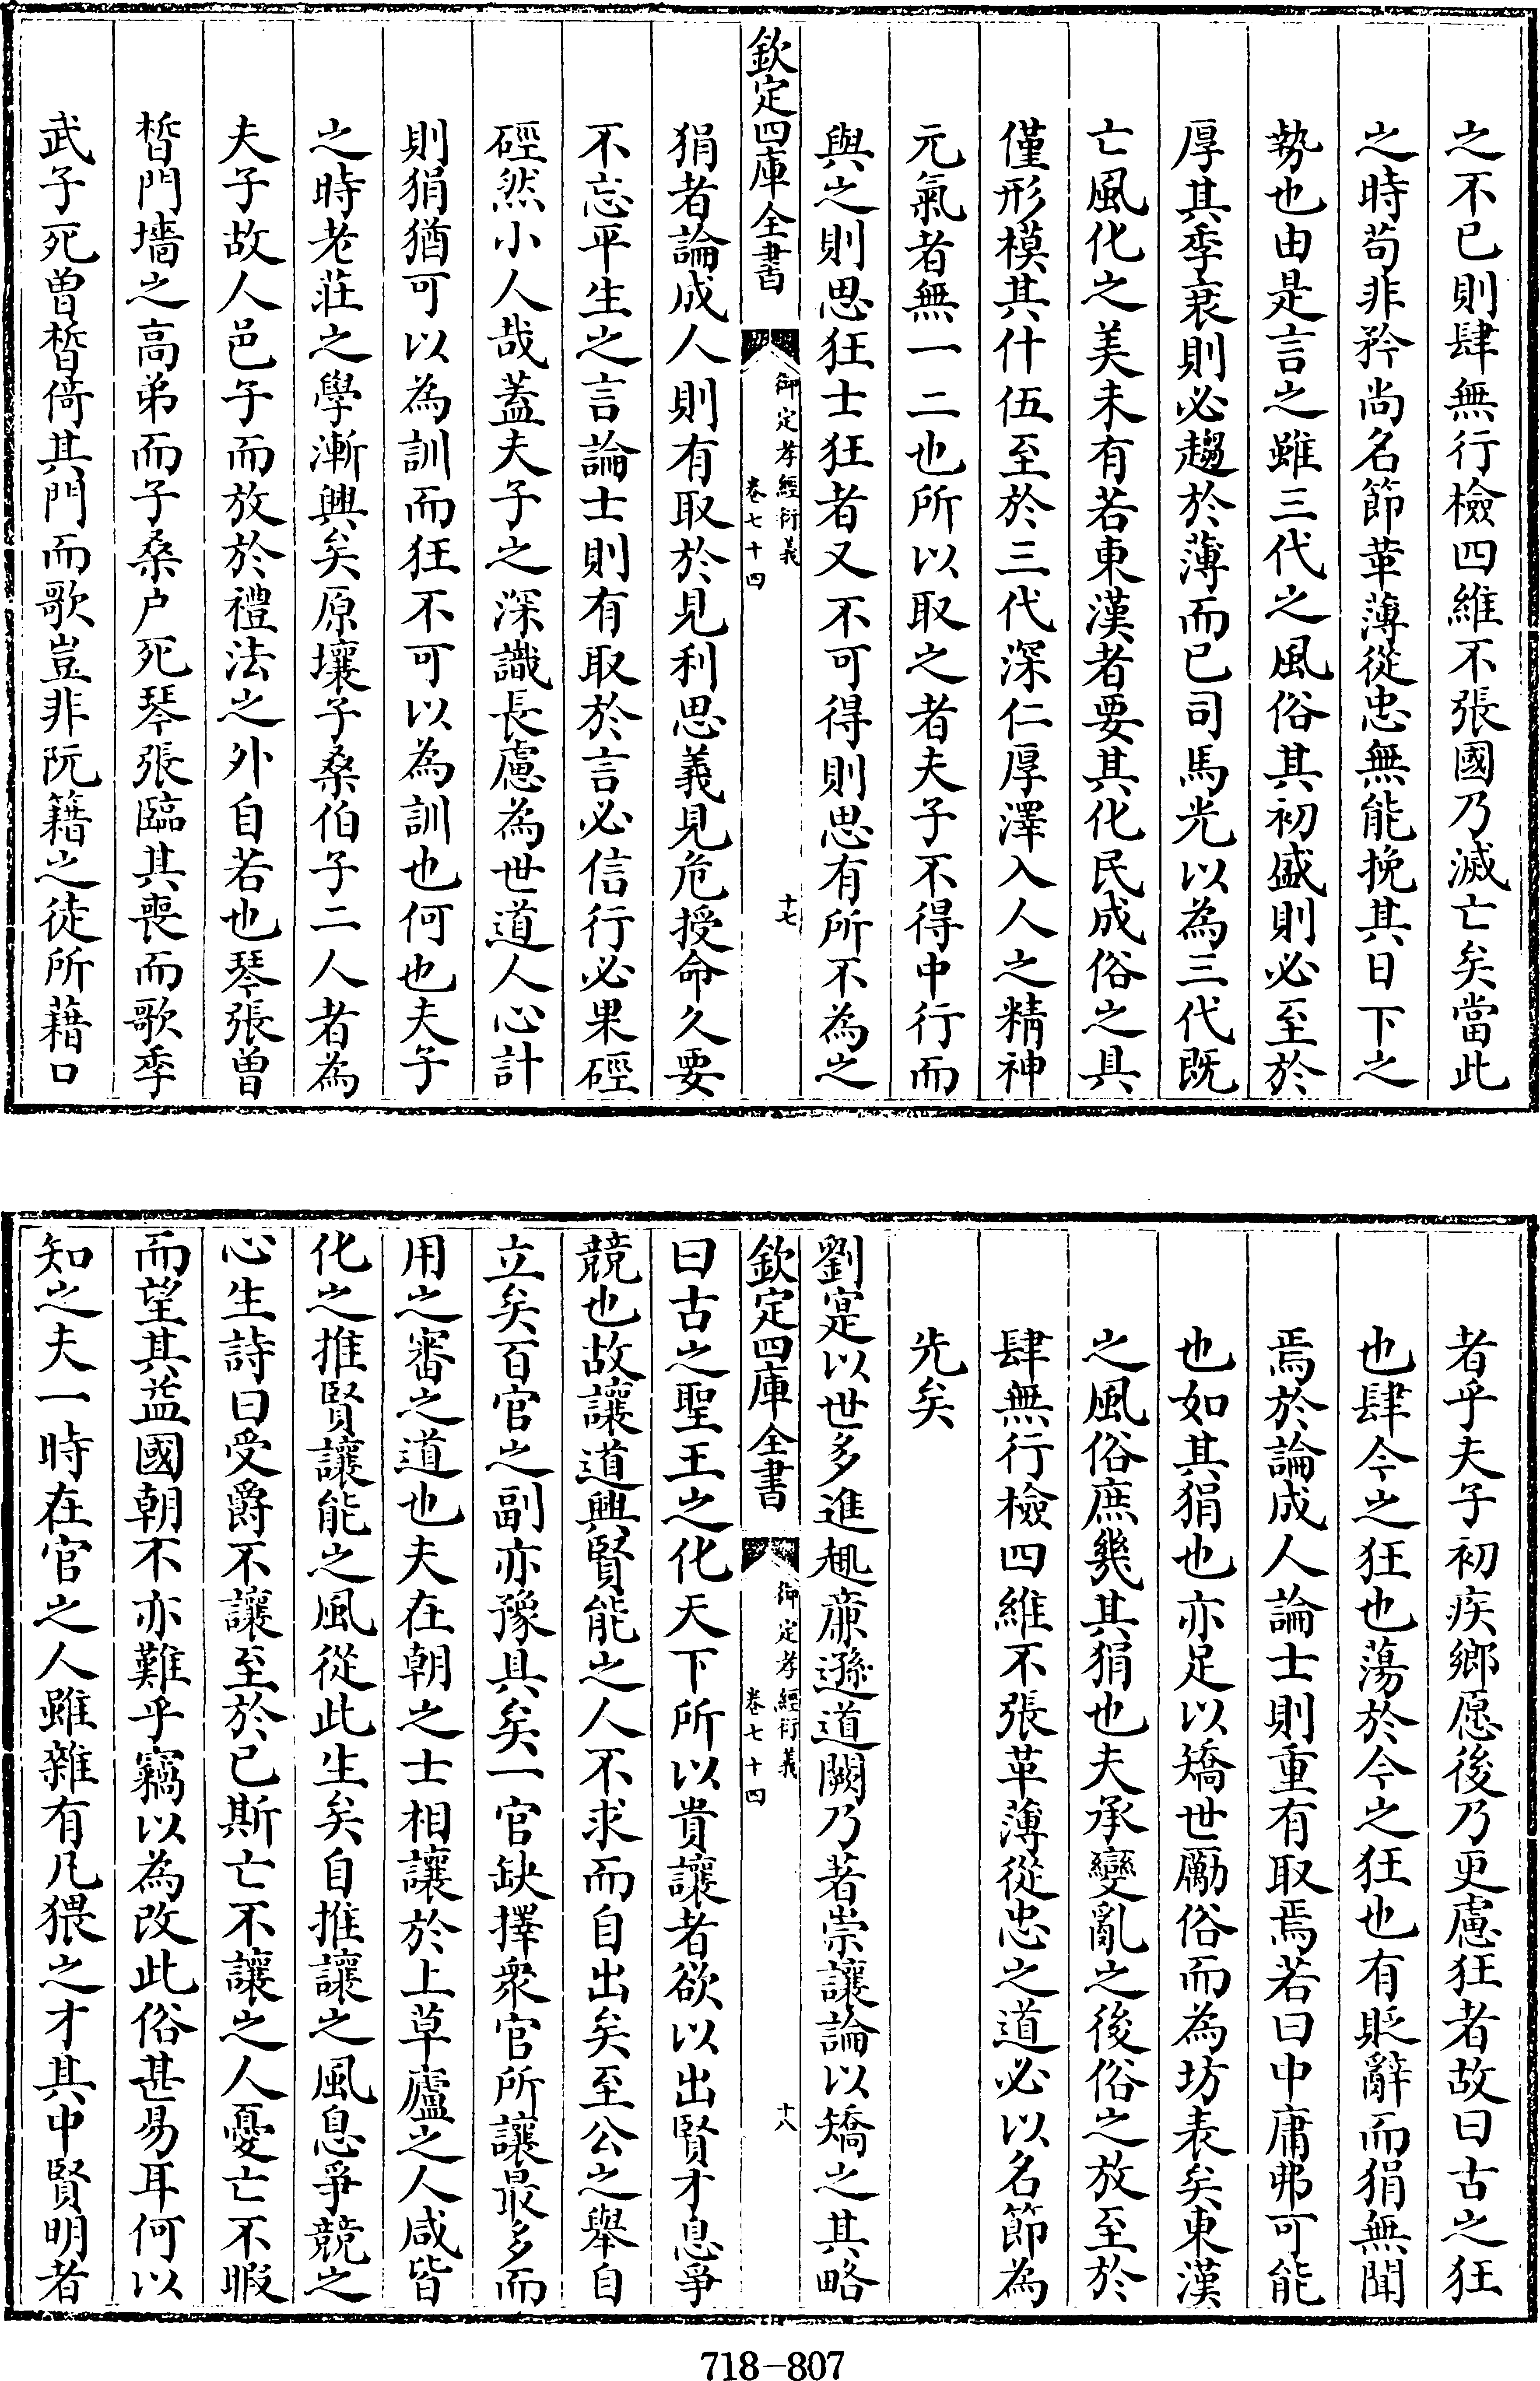 之不已則肆無行檢四維不張國乃滅亡矣當此
之時苟非矜尚名節革薄從忠無能挽其日下之
勢也由是言之雖三代之風俗其初盛則必至於
厚其季衰則必趨於薄而已司馬光以為三代既
亡風化之美未有若東漢者要其化民成俗之具
僅形模其什伍至於三代深仁厚澤入人之精神
元氣者無一二也所以取之者夫子不得中行而
與之則思狂士狂者又不可得則思有所不為之
欽定四庫全書
御定孝經衍義
卷七十四
十七
狷者論成人則有取於見利思義見危授命久要
不忘平生之言論士則有取於言必信行必果硜
硜然小人哉蓋夫子之深識長慮為世道人心計
則狷猶可以為訓而狂不可以為訓也何也夫子
之時老莊之學漸興矣原壤子桑伯子二人者為
夫子故人邑子而放於禮法之外自若也琴張曾
晳門墻之高弟而子桑户死琴張臨其喪而歌季
武子死曾晳倚其門而歌豈非阮籍之徒所藉口
者乎夫子初疾鄉愿後乃更慮狂者故曰古之狂
也肆今之狂也蕩於今之狂也有貶辭而狷無聞
焉於論成人論士則重有取焉若曰中庸弗可能
也如其狷也亦足以矯世勵俗而為坊表矣東漢
之風俗庶幾其狷也夫承變亂之後俗之放至於
肆無行檢四維不張革薄從忠之道必以名節為
先矣
劉寔以世多進趣廉遜道闕乃著崇讓論以矯之其略
欽定四庫全書
御定孝經衍義
卷七十四
十八
曰古之聖王之化天下所以貴讓者欲以出賢才息爭
競也故讓道興賢能之人不求而自出矣至公之舉自
立矣百官之副亦豫具矣一官缺擇衆官所讓最多而
用之審之道也夫在朝之士相讓於上草廬之人咸皆
化之推賢讓能之風從此生矣自推讓之風息爭競之
心生詩曰受爵不讓至於已斯亡不讓之人憂亡不暇
而望其益國朝不亦難乎竊以為改此俗甚易耳何以
知之夫一時在官之人雖雜有凡猥之才其中賢明者
718-807